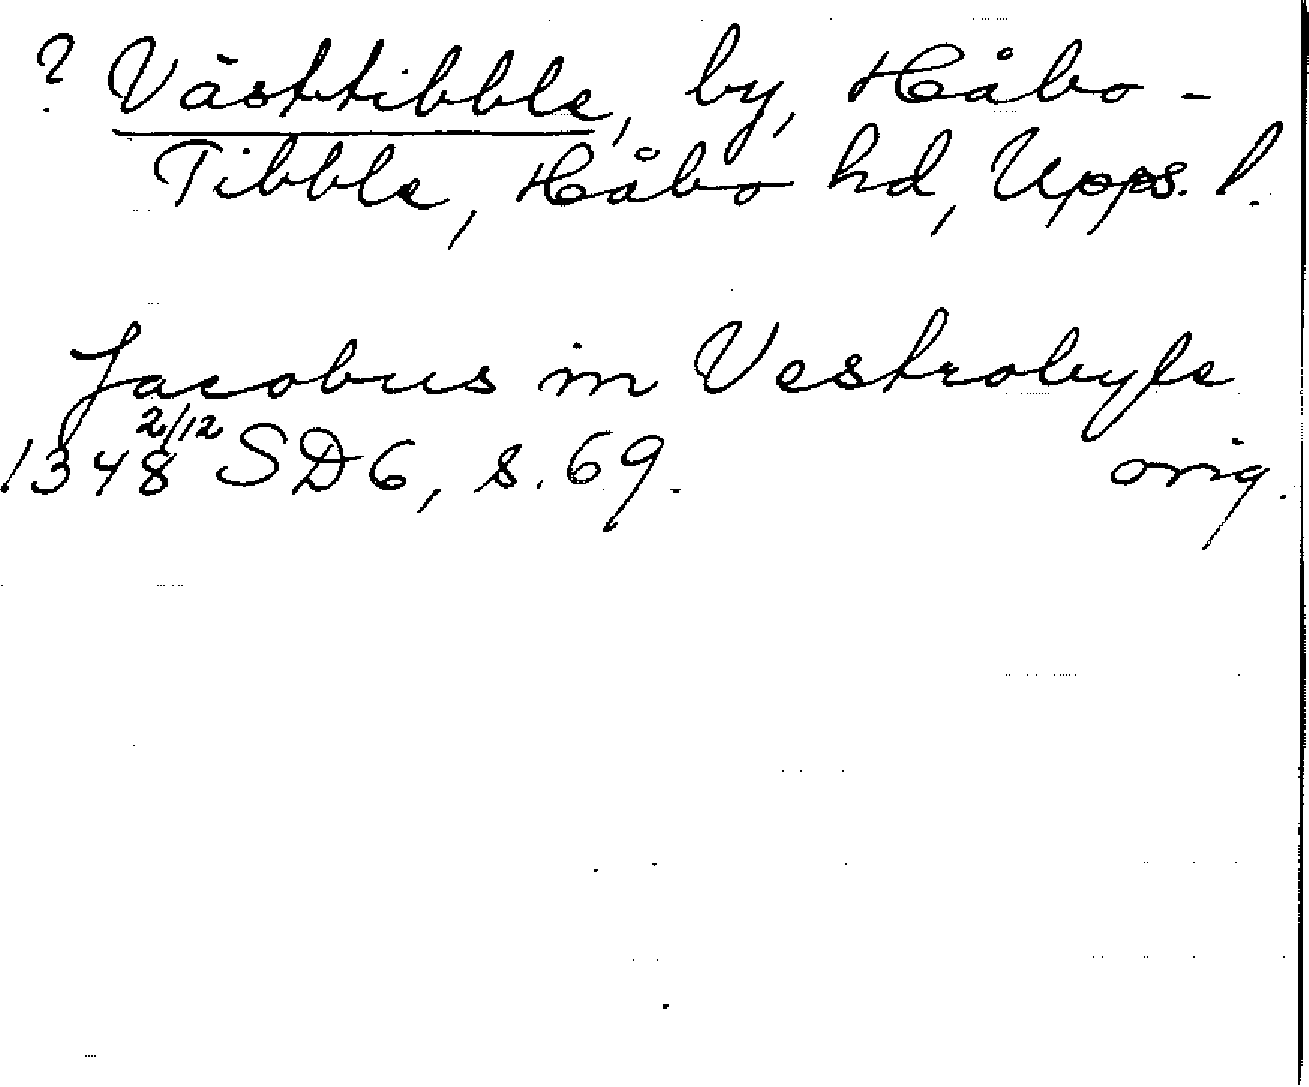 ? Västtibble, by, Håbo-
Tibble, Håbo hd, Upps. l.
Jacobus in Vestrobyle
1348 2/12 SD6, s. 69. orig.